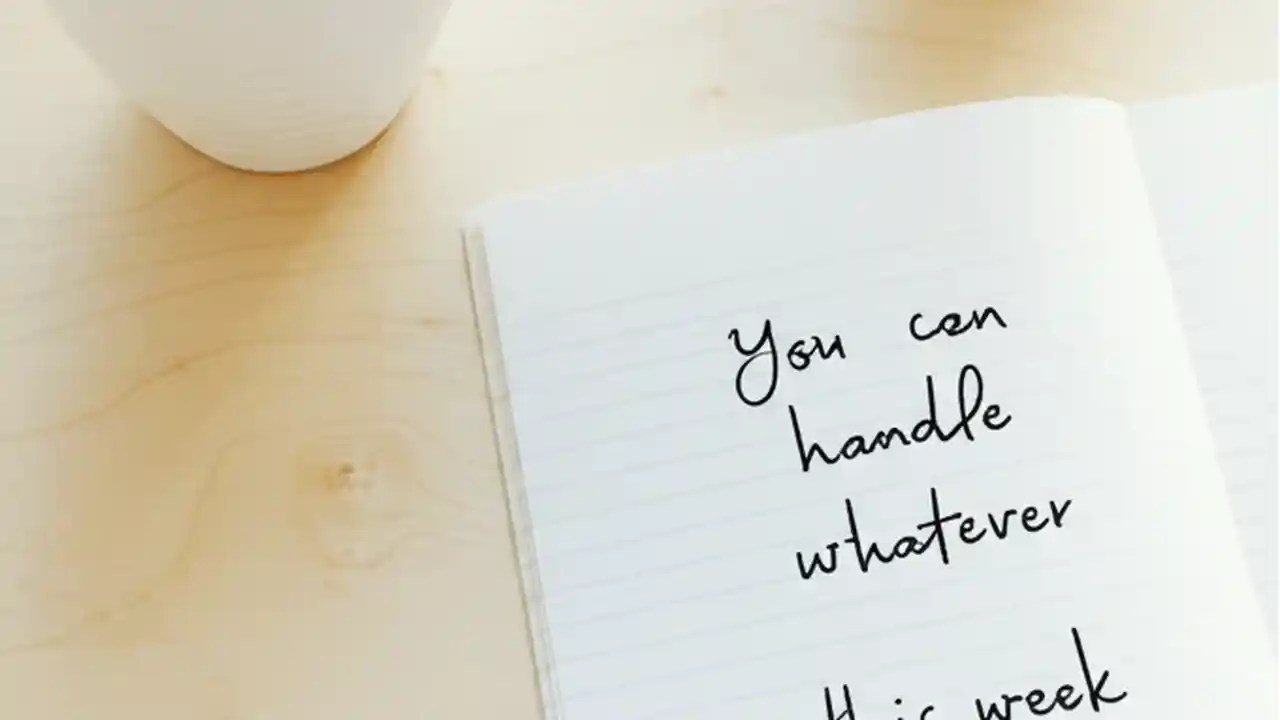 You can
handle
whatever
this week